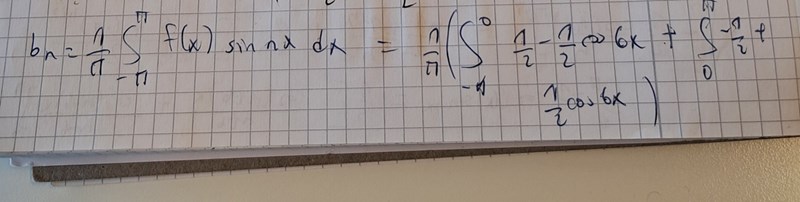 bₙ = 1/π ∫_{-π}^{π} f(x) sin nx dx = 1/π ( ∫_{-π}^{0} 1/2 - 1/2 cos 6x + ∫_{0}^{π} -1/2 +
1/2 cos 6x )